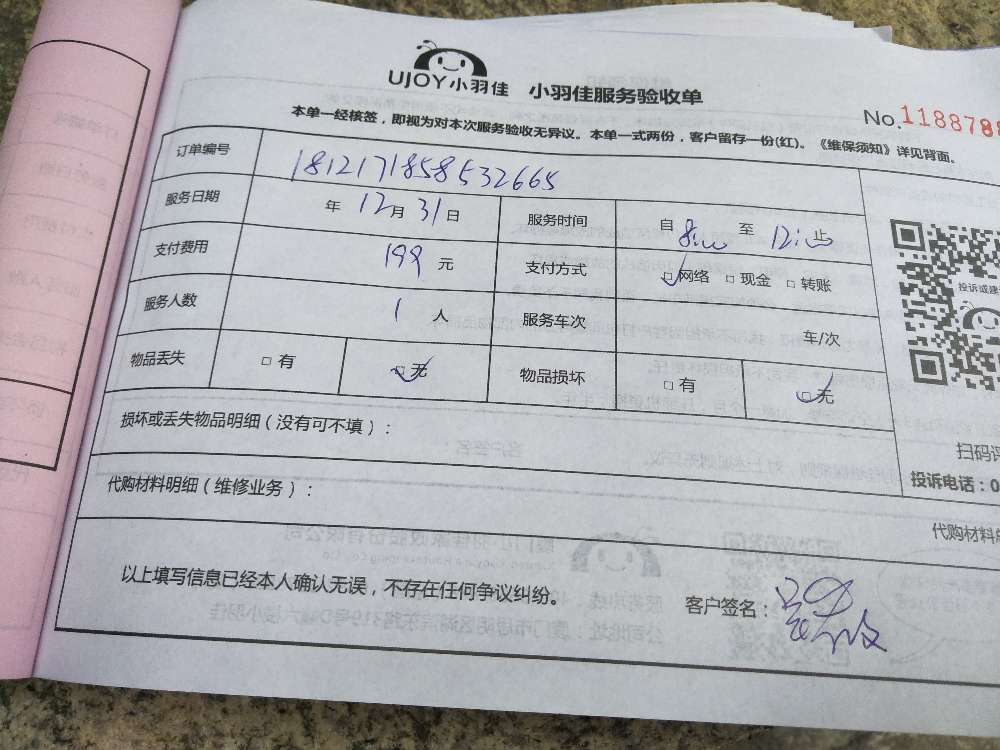 UJOY小羽佳 小羽佳服务验收单
No.118878
本单一经核签，即视为对本次服务验收无异议。本单一式两份，客户留存一份(红)。《维保须知》详见背面。
订单编号 1812171858532665
服务日期 年 12月 31日 服务时间 自 8:00 至 12:00 止
支付费用 199 元 支付方式 □网络 □现金 □转账
服务人数 1 人 服务车次 车/次
物品丢失 □有 □无 物品损坏 □有 □无
投诉或建
损坏或丢失物品明细（没有可不填）：
扫码评
投诉电话：0
代购材料明细（维修业务）：
代购材料
以上填写信息已经本人确认无误，不存在任何争议纠纷。 客户签名：